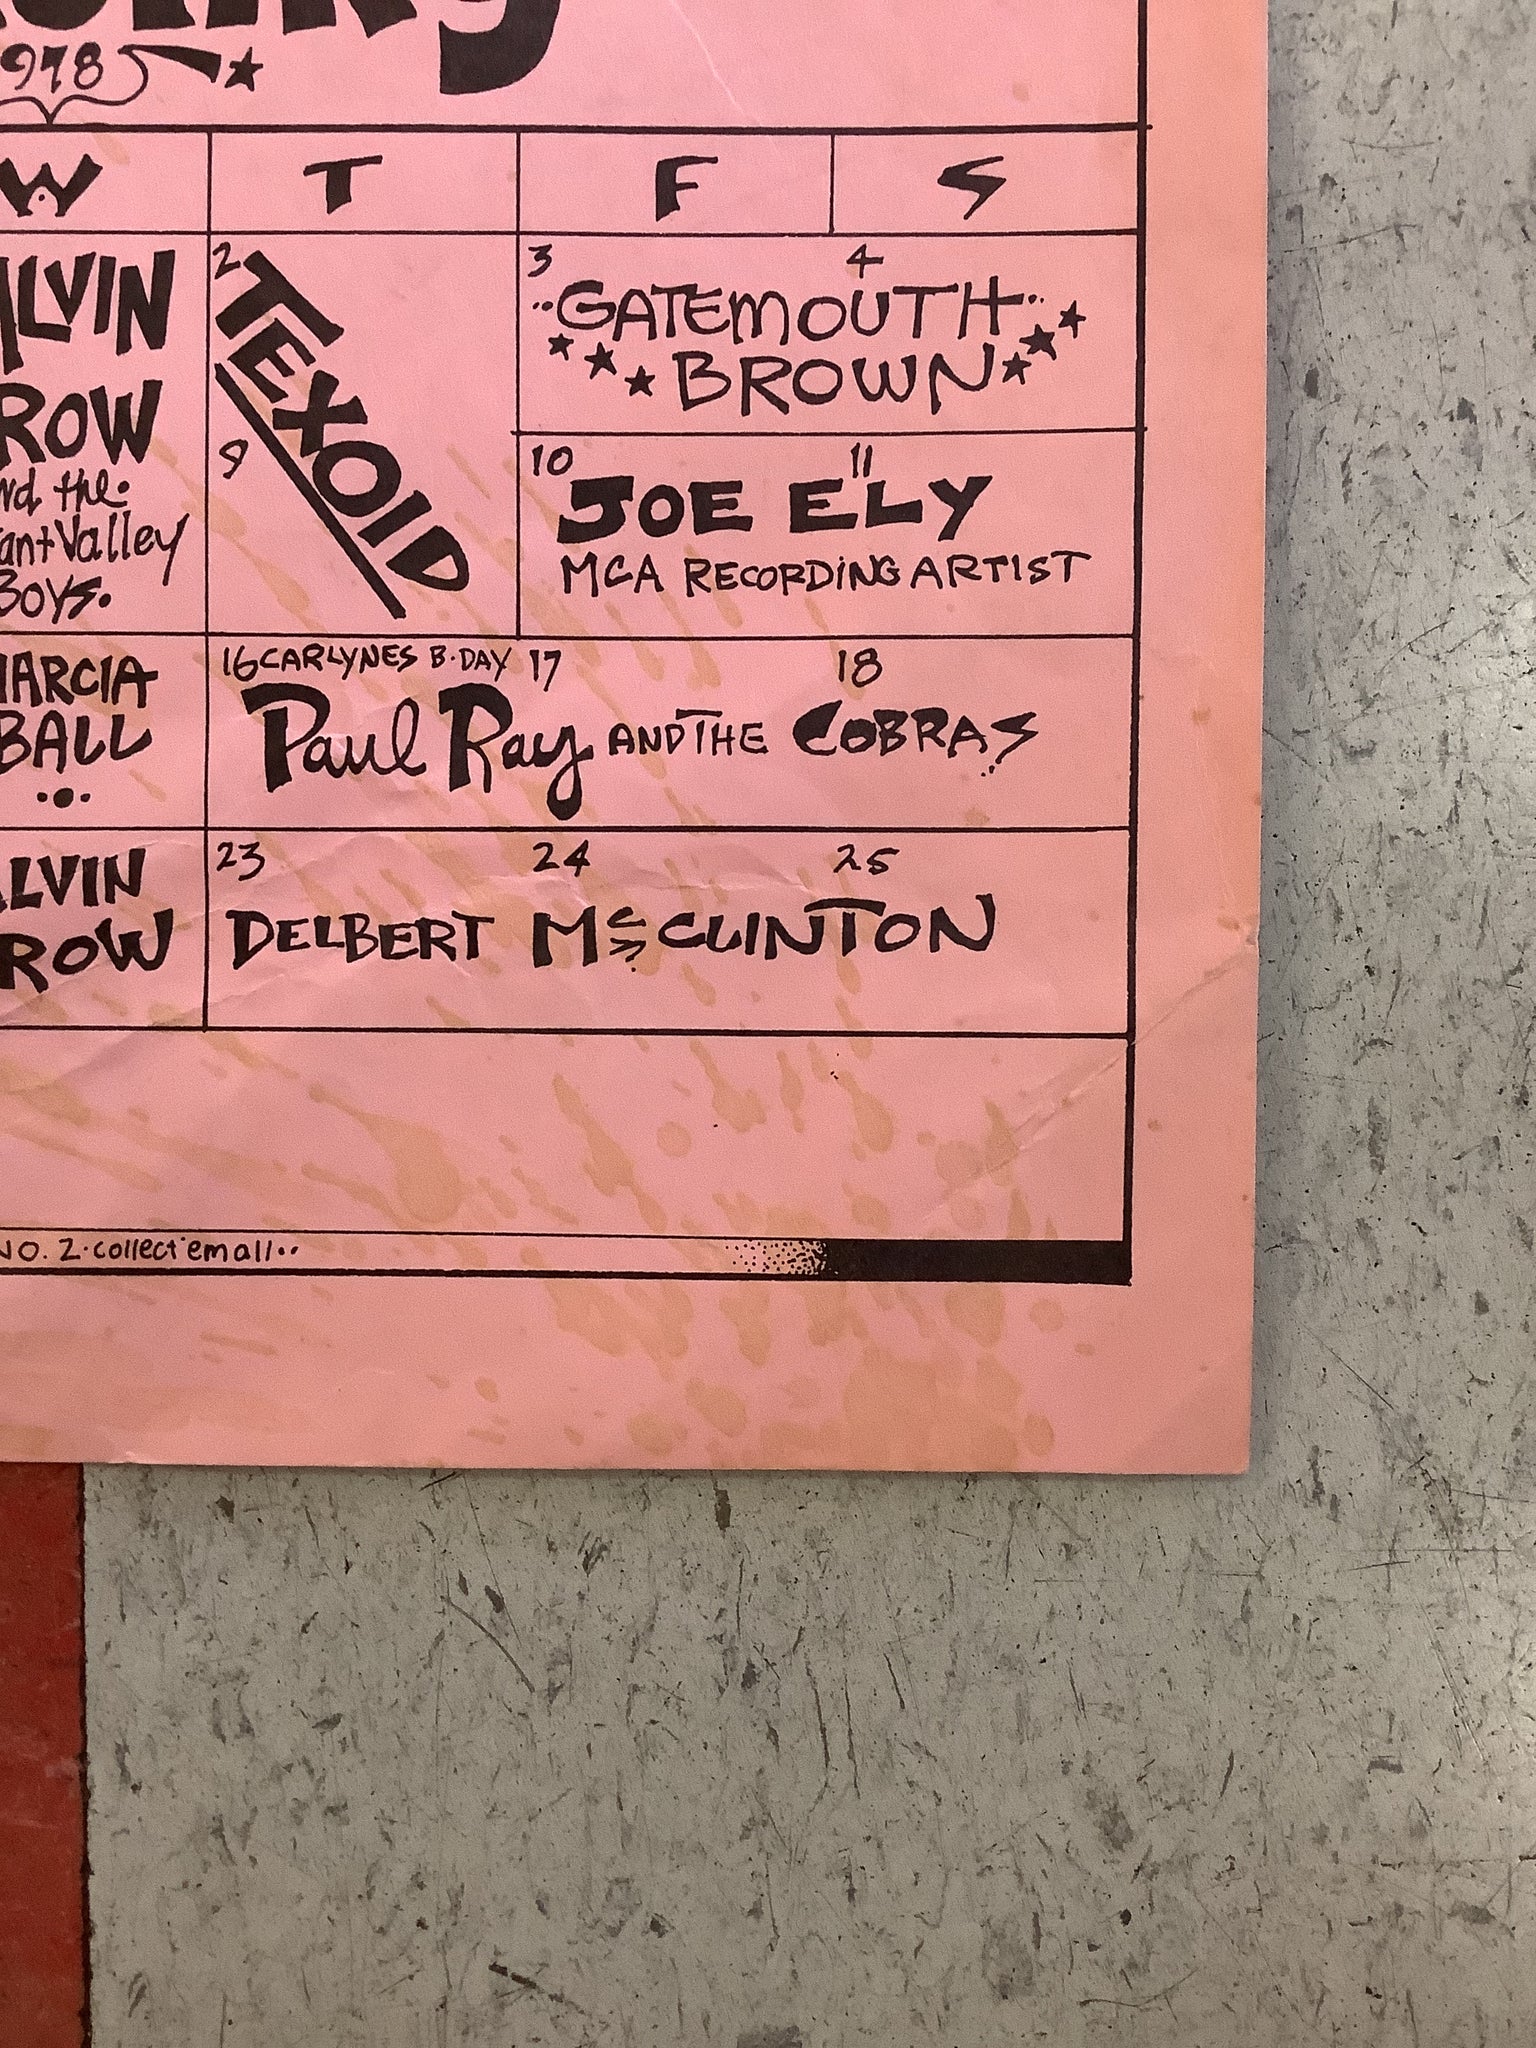 978
W T F S
ALVIN
ROW
nd the
ant Valley
Boys.
2
9
TEXOID
3 4
GATEMOUTH
BROWN
10 11
JOE ELY
MCA RECORDING ARTIST
MARCIA
BALL
16 CARLYNES B·DAY 17 18
Paul Ray AND THE COBRAS
ALVIN
ROW
23 24 25
DELBERT McCLINTON
NO. 2·collect'em all··